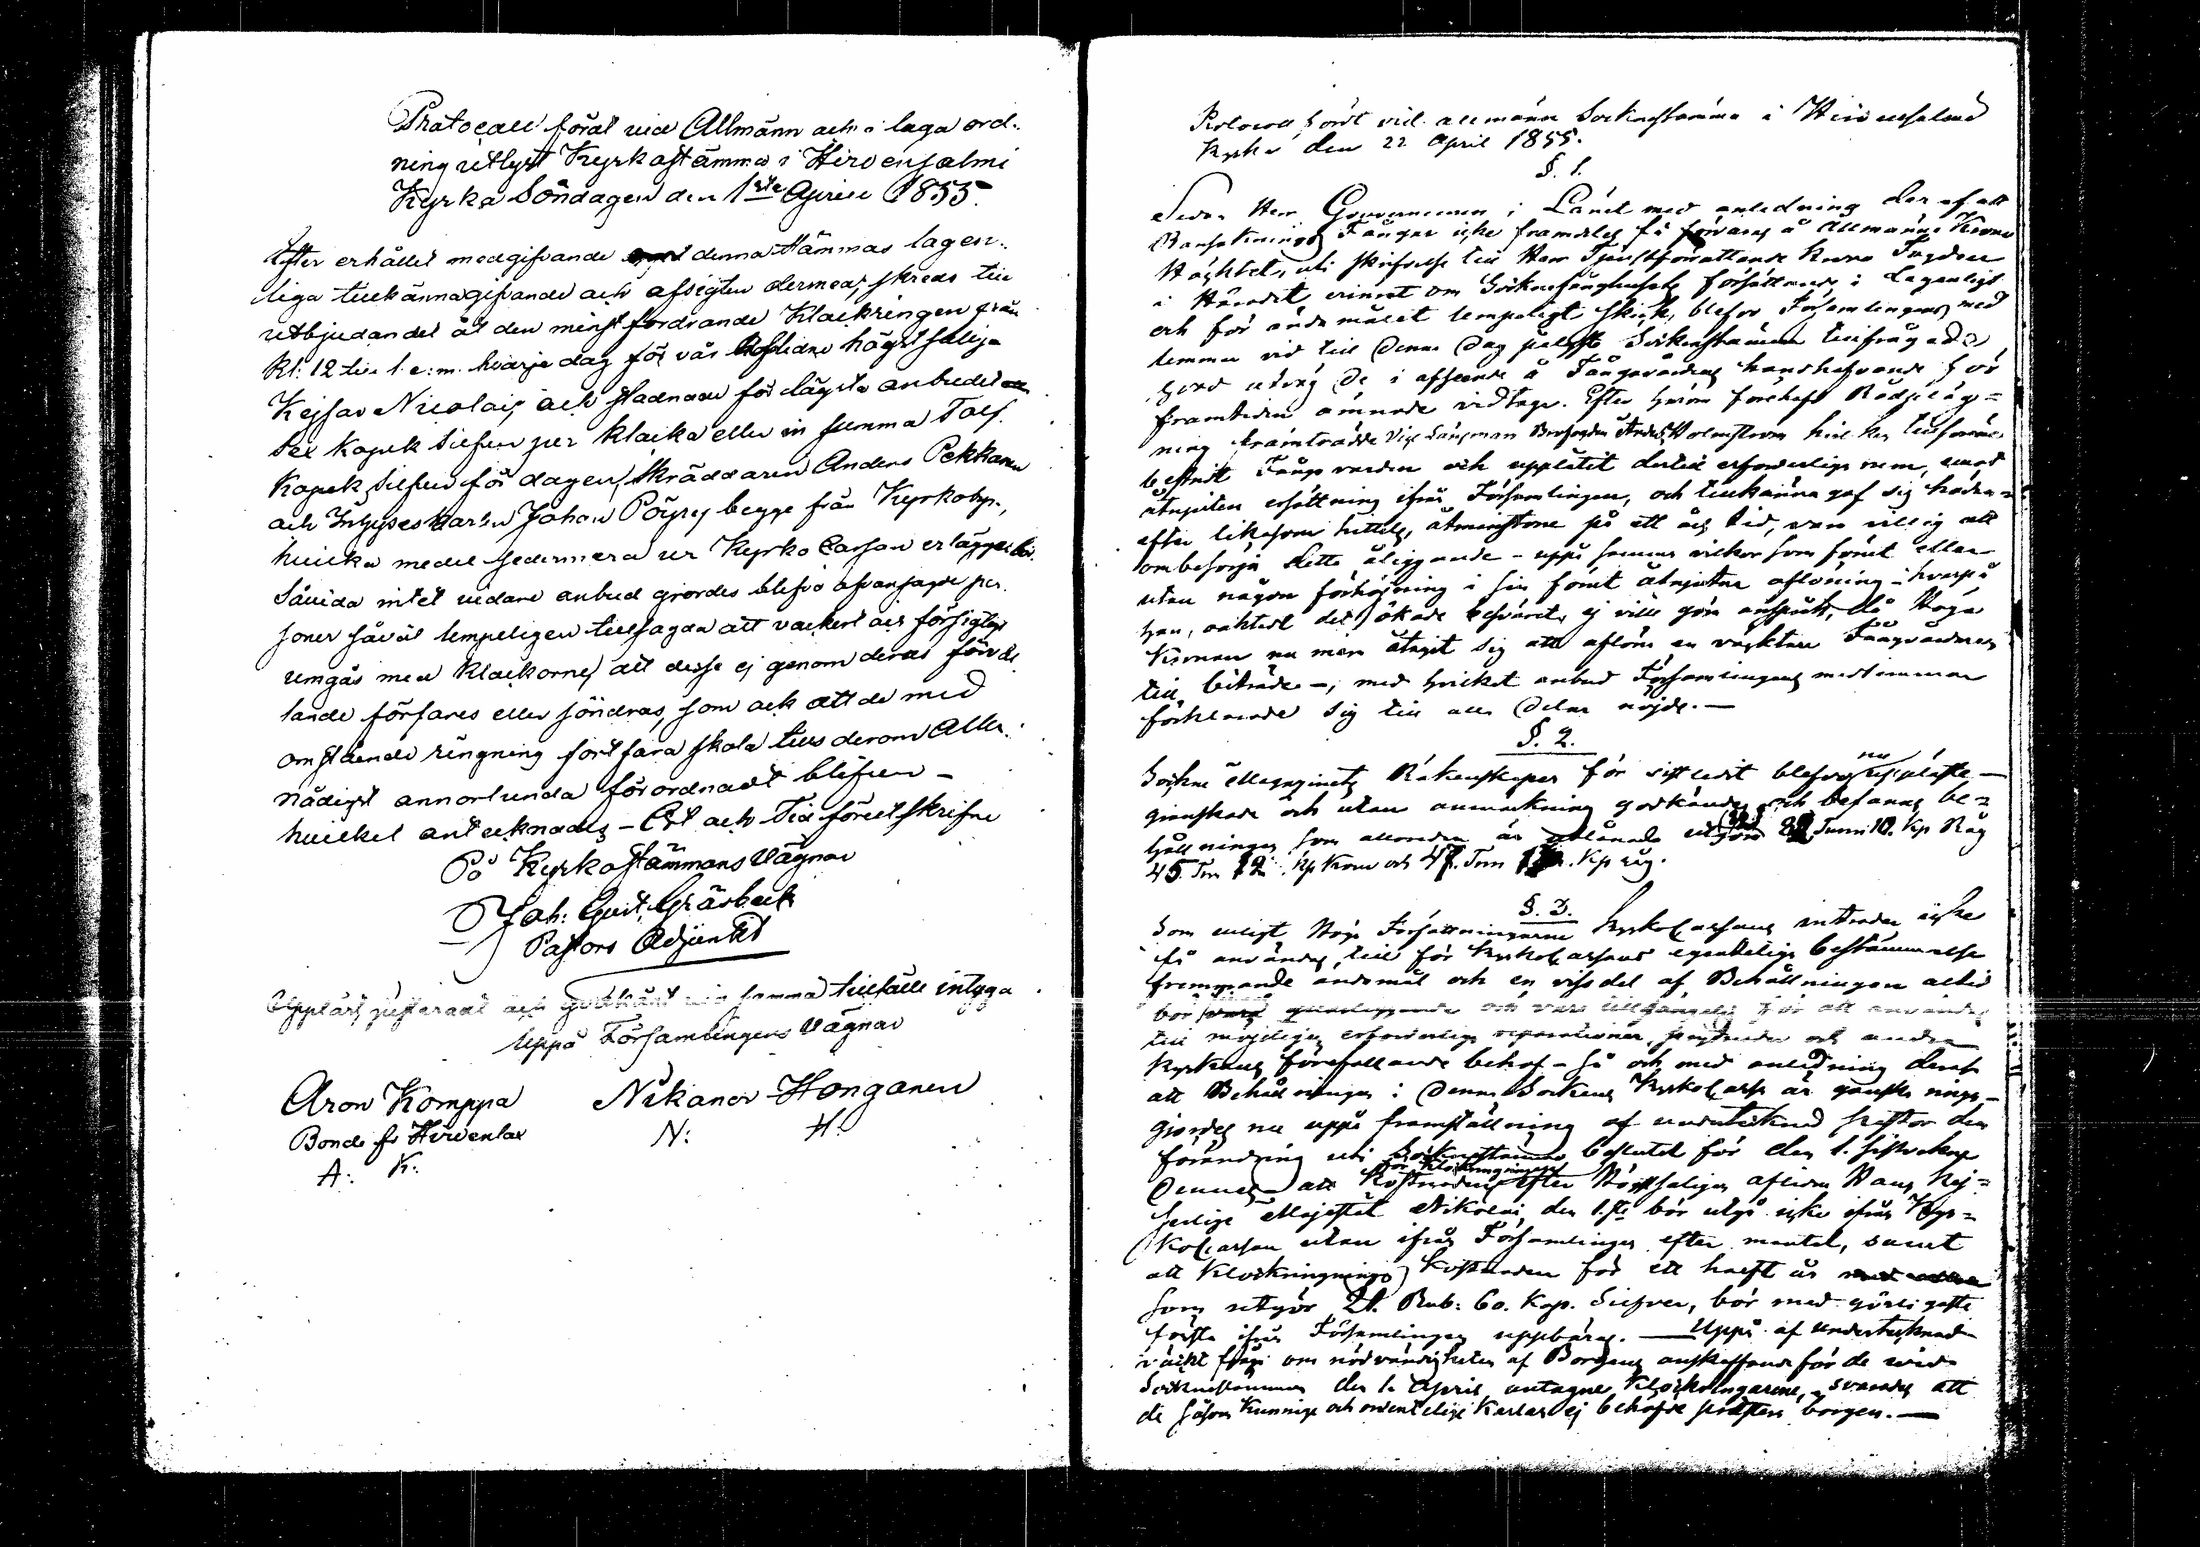 Protocoll fördt vid Allmänn och i laga ord-
ning utlyst Kyrkostämma i Hirvensalmi
Kyrka Söndagen den 1ste Aprill 1855.
Efter erhållet medgifvande denna stämmas lagen-
liga tillkännagifvande och afsigten dermed, skreds till
utbjudandet åt den minst fordrande Klockringen från
Kl: 12 till 1. e:m. hvarje dag för vår högstsalige
Kejsar Nicolai, och stadnade för lägsta anbudet
Sex Kopek Silfver per klocka eller in summa Tolf
Kopek Silfver för dagen, Skräddaren Anders Pekkanen
och Inhyseskarlen Johan Pöyry begge från Kyrkoby,
hvilka medel sedermera ur Kyrko Cassan erläggas bör.
Såvida intet vidare anbud gjordes blefvo ofvansagde per-
soner såväl lempeligen tillsagda att vackert och försigtigt
umgås med Klockorne, att desse ej genom deras förvål-
lande förfares eller söndras, som ock att de med
omstående ringning fortfara skola tills derom Aller-
nådigst annorlunda förordnadt blifver –
hvilket antecknades – Ort och Tid föreskrifne
På Kyrkostämmans Vägnar
Joh: Gust. Gråsbeck
Pastors Adjunkt
Uppläst, justeradt och godkänt vid samma tillfälle intyga
Uppå Församlingens Vägnar
Aron Komppa Nikanor Honganen
Bonde fr Hirvenlax N: H:
A: K:
Protocoll fördt vid allmänn Sockenstämma i Hirvensalmi
Kyrka den 22 April 1855.
§. 1.
Sedan Herr Gouverneuren i Länet med anledning der af att
Ransaknings Fångar icke framdeles få förvaras å Allmänna Krono
Häktet, uti skrifvelse till Herr Tjenstförrättande Krono Fogden
i Häradet erinrat om Sockenfånghusets försättande i lagenligt
och för ändamålet lempeligt skick, blefvo Församlingens med-
lemmar vid till denna dag pålyst Sockenstämma tillfrågade,
hvad utväg de i afseende å Fångvårdens handhafvande för
framtiden ämnade vidtaga. Efter härom förehafd Rådpläg-
ning framträdde Vice Länsman Brofogden Anders Holmström hvilken tillförene
bestridt Fångvården och upplåtit dertill erforderliga rum, emot
åtnjuten ersättning ifrån Församlingen, och tillkännagaf sig hädan-
efter likasom hittills, åtminstone på ett års tid, vara villig att
ombesörja detta åliggande – uppå samma vilkor som förut eller
utan någon förhöjning i sin förut åtnjutna aflöning – hvarpå
han, oaktadt det ökade besväret, ej ville göra anspråk, då Höga
Kronan nu mera åtagit sig att aflöna en väktare Fångvårdaren
till biträde –, med hvilket anbud Församlingens medlemmar
förklarade sig till alla delar nöjde. –
§. 2.
Sockne Magazinets Räkenskaper för sistledit blefvo nu uppläste –
granskade och utan anmärkning godkände och befanns be-
hållningen som utgöra Tunn 10. Kp Råg
45. Tnn 12 Kp Korn och 47. Tnn Kp råg.
§. 3.
Som enligt Höga Författningarne KyrkoCassans inträder icke
få användas till för KyrkoCassans egentliga bestämmelse
främmande ändamål och en viss del af Behållningen alltid
bör qvarliggande och vara tillgängelig för att användas
till möjeliga, erforderliga reparationer, prydnader och andra
Kyrkans förefallande behof – så och med anledning deraf
att Behållningen i denna Sockens KyrkoCassa är ganska ringa –
gjordes nu uppå framställning af undertecknad Pastor den
förändring uti Sockenstämmo beslutet för den 1. sistvekne
dennes – att Kostnaden för Klockringningen efter Högstsalig aflidne Hans Kej-
serlige Majestät Nikolai den 1.ste bör utgå icke ifrån Kyr-
koCassan utan ifrån Församlingen efter mantal, samt
att Klockringnings Kostnaden för ett halft år
som utgör 21. Rub: 60. Kop. Silfver, bör med görligaste
första ifrån Församlingen uppbäras. — Uppå af undertecknad
väckt fråga om nödvändigheten af Borgens anskaffande för de vid
Sockenstämman den 1. April antagne Klockringarene, svarades att
de såsom kunnige och ordentelige Karlar ej behöfde prestera borgen. —